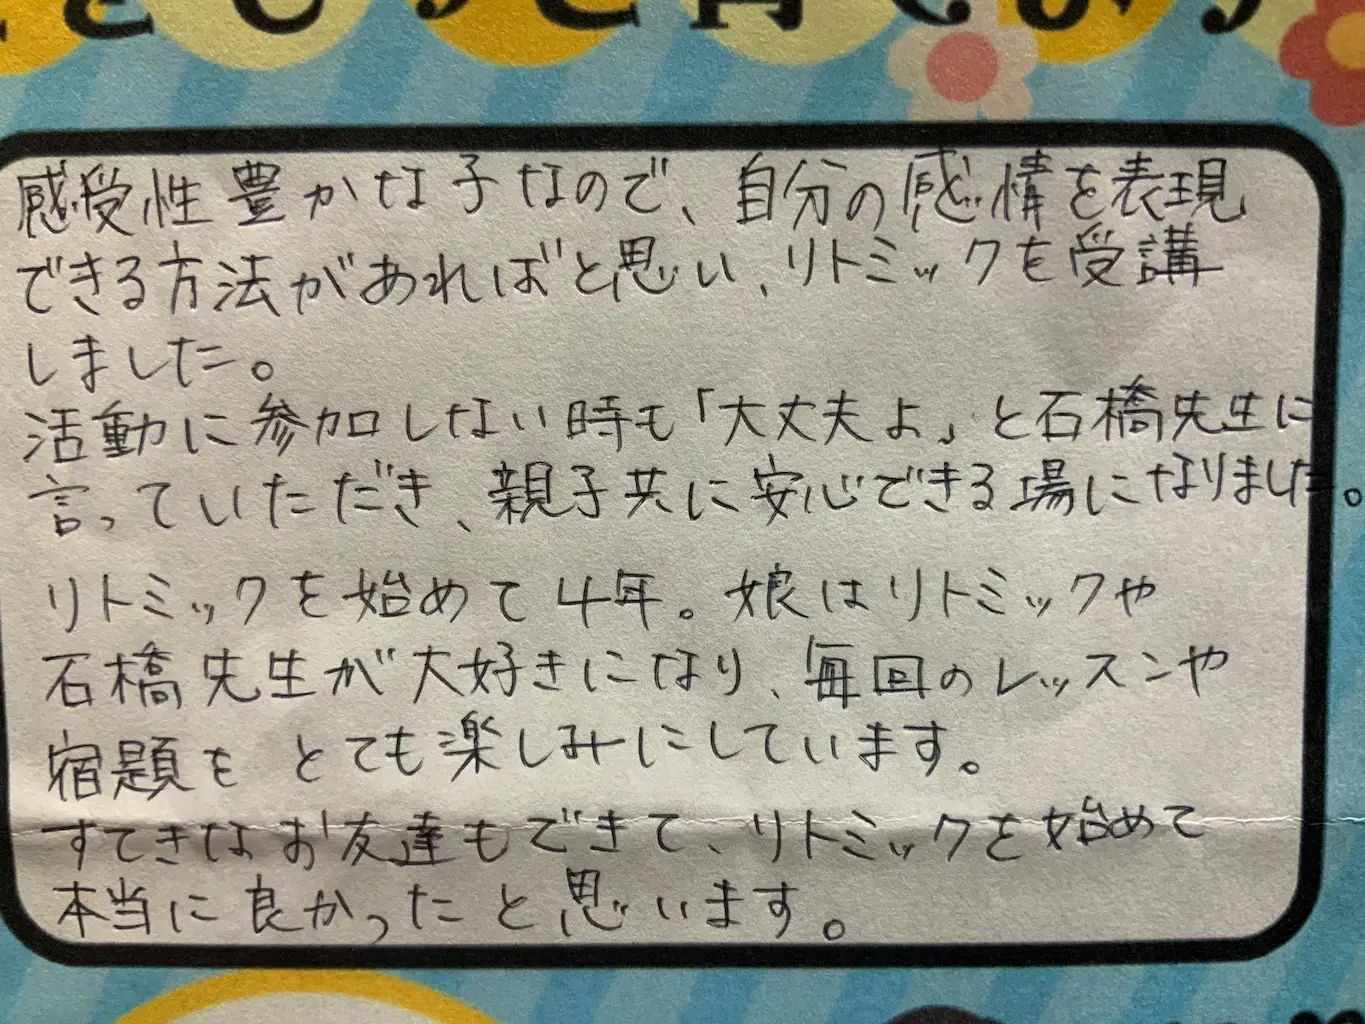 感受性豊かな子なので、自分の感情を表現
できる方法があればと思い、リトミックを受講
しました。
活動に参加しない時も「大丈夫よ」と石橋先生に
言っていただき、親子共に安心できる場になりました。
リトミックを始めて4年。娘はリトミックや
石橋先生が大好きになり、毎回のレッスンや
宿題を とても楽しみにしています。
すてきなお友達もできて、リトミックを始めて
本当に良かったと思います。